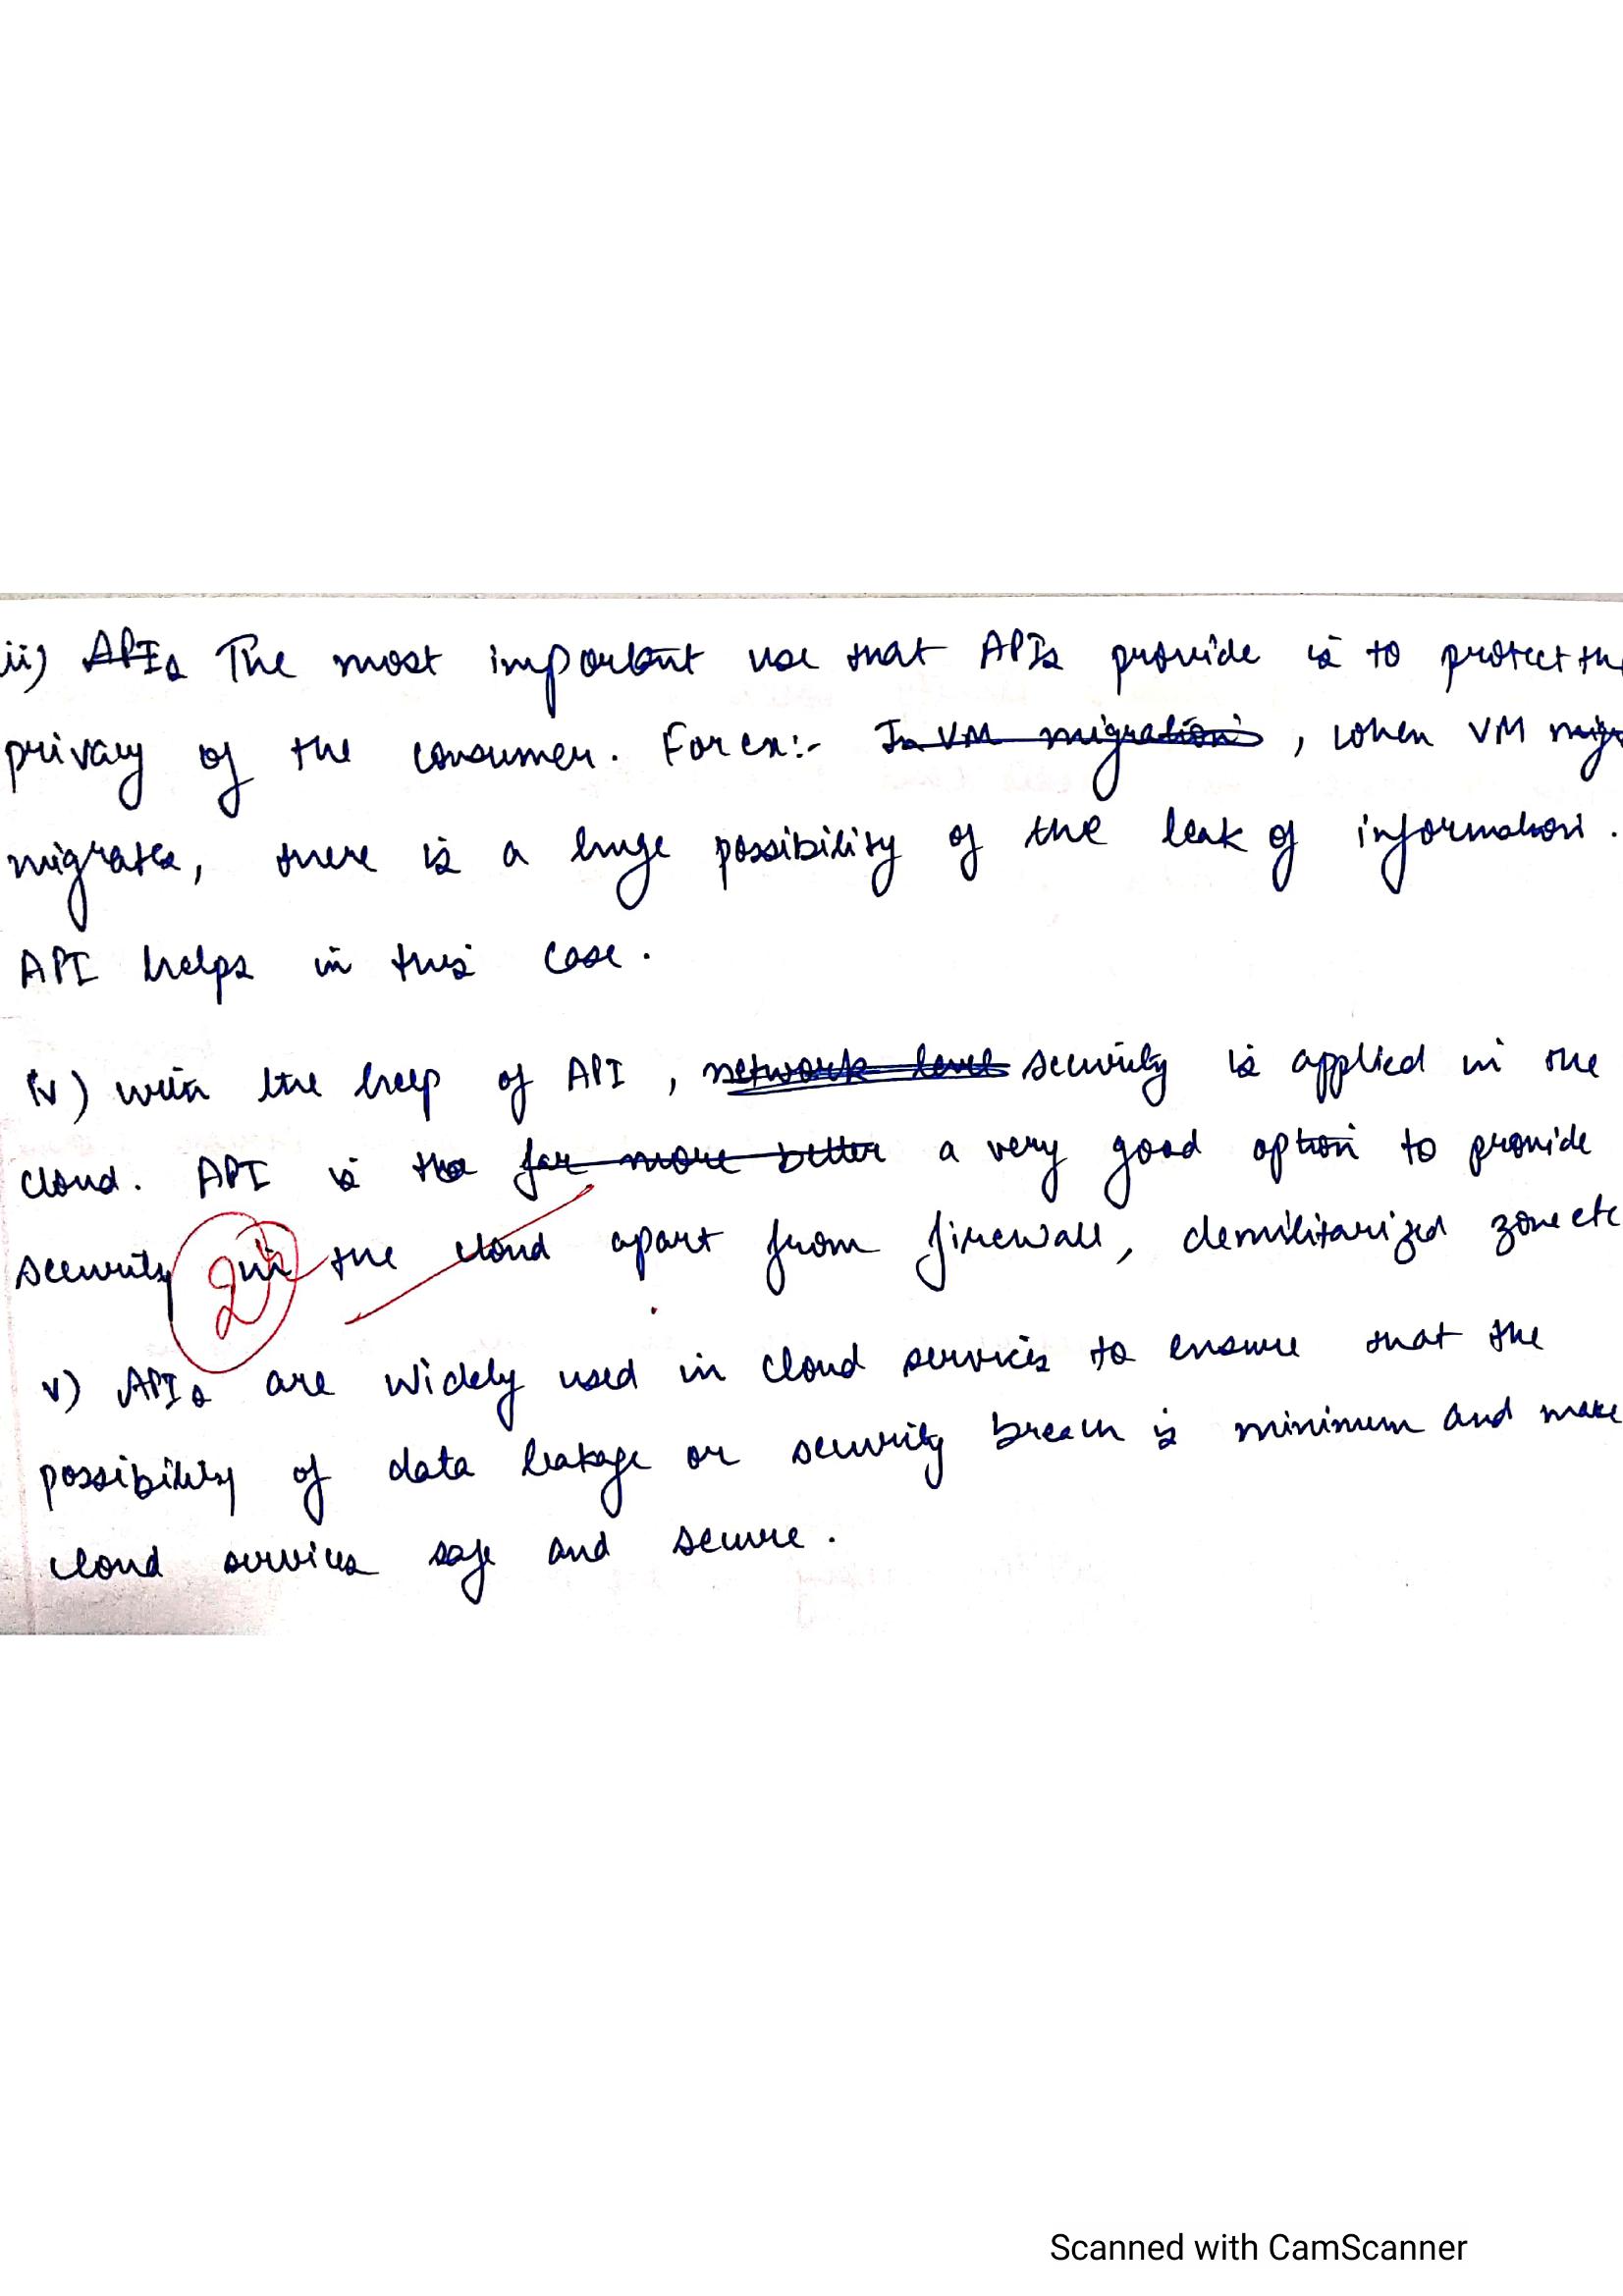 ii) APIs The most important use that APIs provide is to protect the
privacy of the consumer. For ex:- In VM migration , when VM migr
migrates, there is a huge possibility of the leak of information.
API helps in this case.
iv) with the help of API , network level security is applied in the
cloud. API is the far more better a very good option to provide
security in the cloud apart from firewall, demilitarized zone etc
2
v) APIs are widely used in cloud services to ensure that the
possibility of data leakage or security breach is minimum and make
cloud services safe and secure.
Scanned with CamScanner